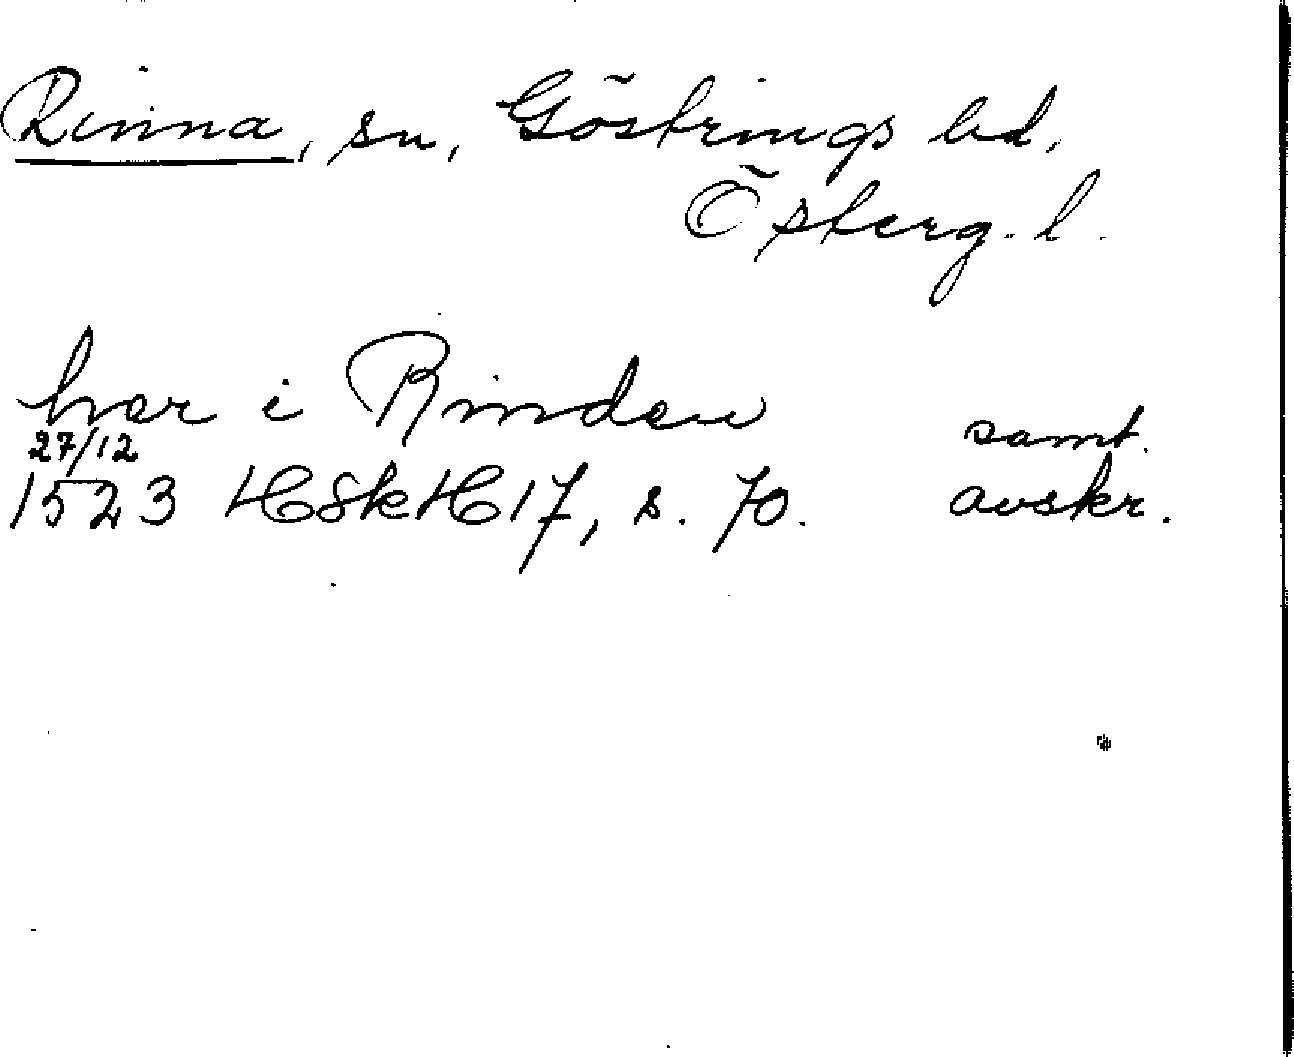 Rinna, sn, Göstrings hd,
Österg. l.
hær i Rindæu
samt.
27/12
1523 HSkH17, s. 70. avskr.